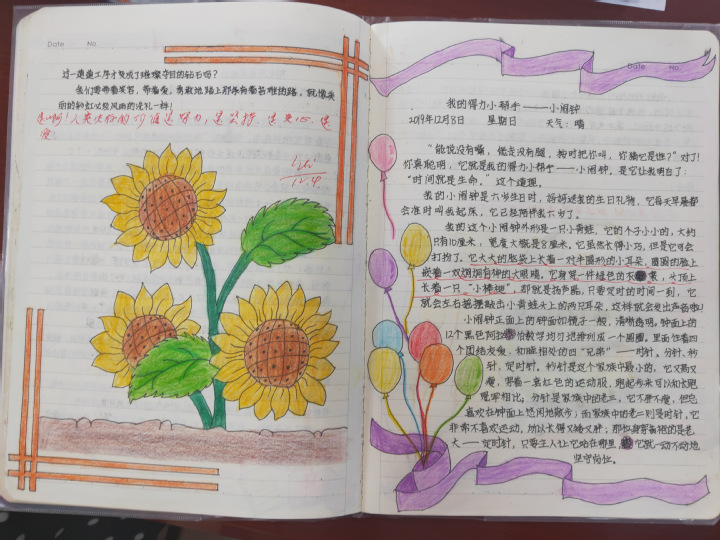 Date No.
过一道道工序才变成了璀璨夺目的钻石吗?
我们要带着笑容,带着爱,勇敢地踏上那条有着苦难的路,就像美
丽的彩虹必经风雨的洗礼一样!
是啊!人类优秀的
Date No.
我的得力小帮手——小闹钟
2019年12月8日 星期日 天气:晴
“能说没有嘴,能走没有腿,按时把你叫,你猜它是谁?”对了!
你真聪明,它就是我的得力小帮手——小闹钟。是它让我明白了:
“时间就是生命。”这个道理。
我的小闹钟是六岁生日时,妈妈送我的生日礼物,它每天早晨都
会准时叫我起床,它已经陪伴我六岁了。
我的这个小闹钟外形是一只小黄蛙,它的个子小小的,大约
只有10厘米,宽度大概是8厘米。它虽然长得小巧,但是它可会
打扮了。它大大的脑袋上长着一对半圆形的小耳朵,圆圆的脸上
嵌着一双炯炯有神的大眼睛,它身穿一件绿色的衣裳,头顶上
长着一只“小棒槌”,那就是扬声器,只要定时的时间一到,它
就会左右摇摆敲击小黄蛙头上的两只耳朵,这样就会发出声音啦!
小闹钟正面上的钟面如镜子一般,清晰透明,钟面上的
12个黑色阿拉伯数字均匀地排列成一个圆圈,里面住着四
个团结友爱、和睦相处的四“兄弟”——时针、分针、秒
针、定时针。秒针是这个家族中最小的,它又高又
瘦,穿着一套红色的运动服,跑起步来可以和长跑
冠军相比;分针是家族中的老三,它不胖不瘦,但总
喜欢在钟面上悠闲地散步;而家族中的老二则是时针,它
非常不喜欢运动,所以长得又矮又胖;那位身穿黄袍的是老
大——定时针,只要主人让它站在哪里,它就一动不动地
坚守岗位。